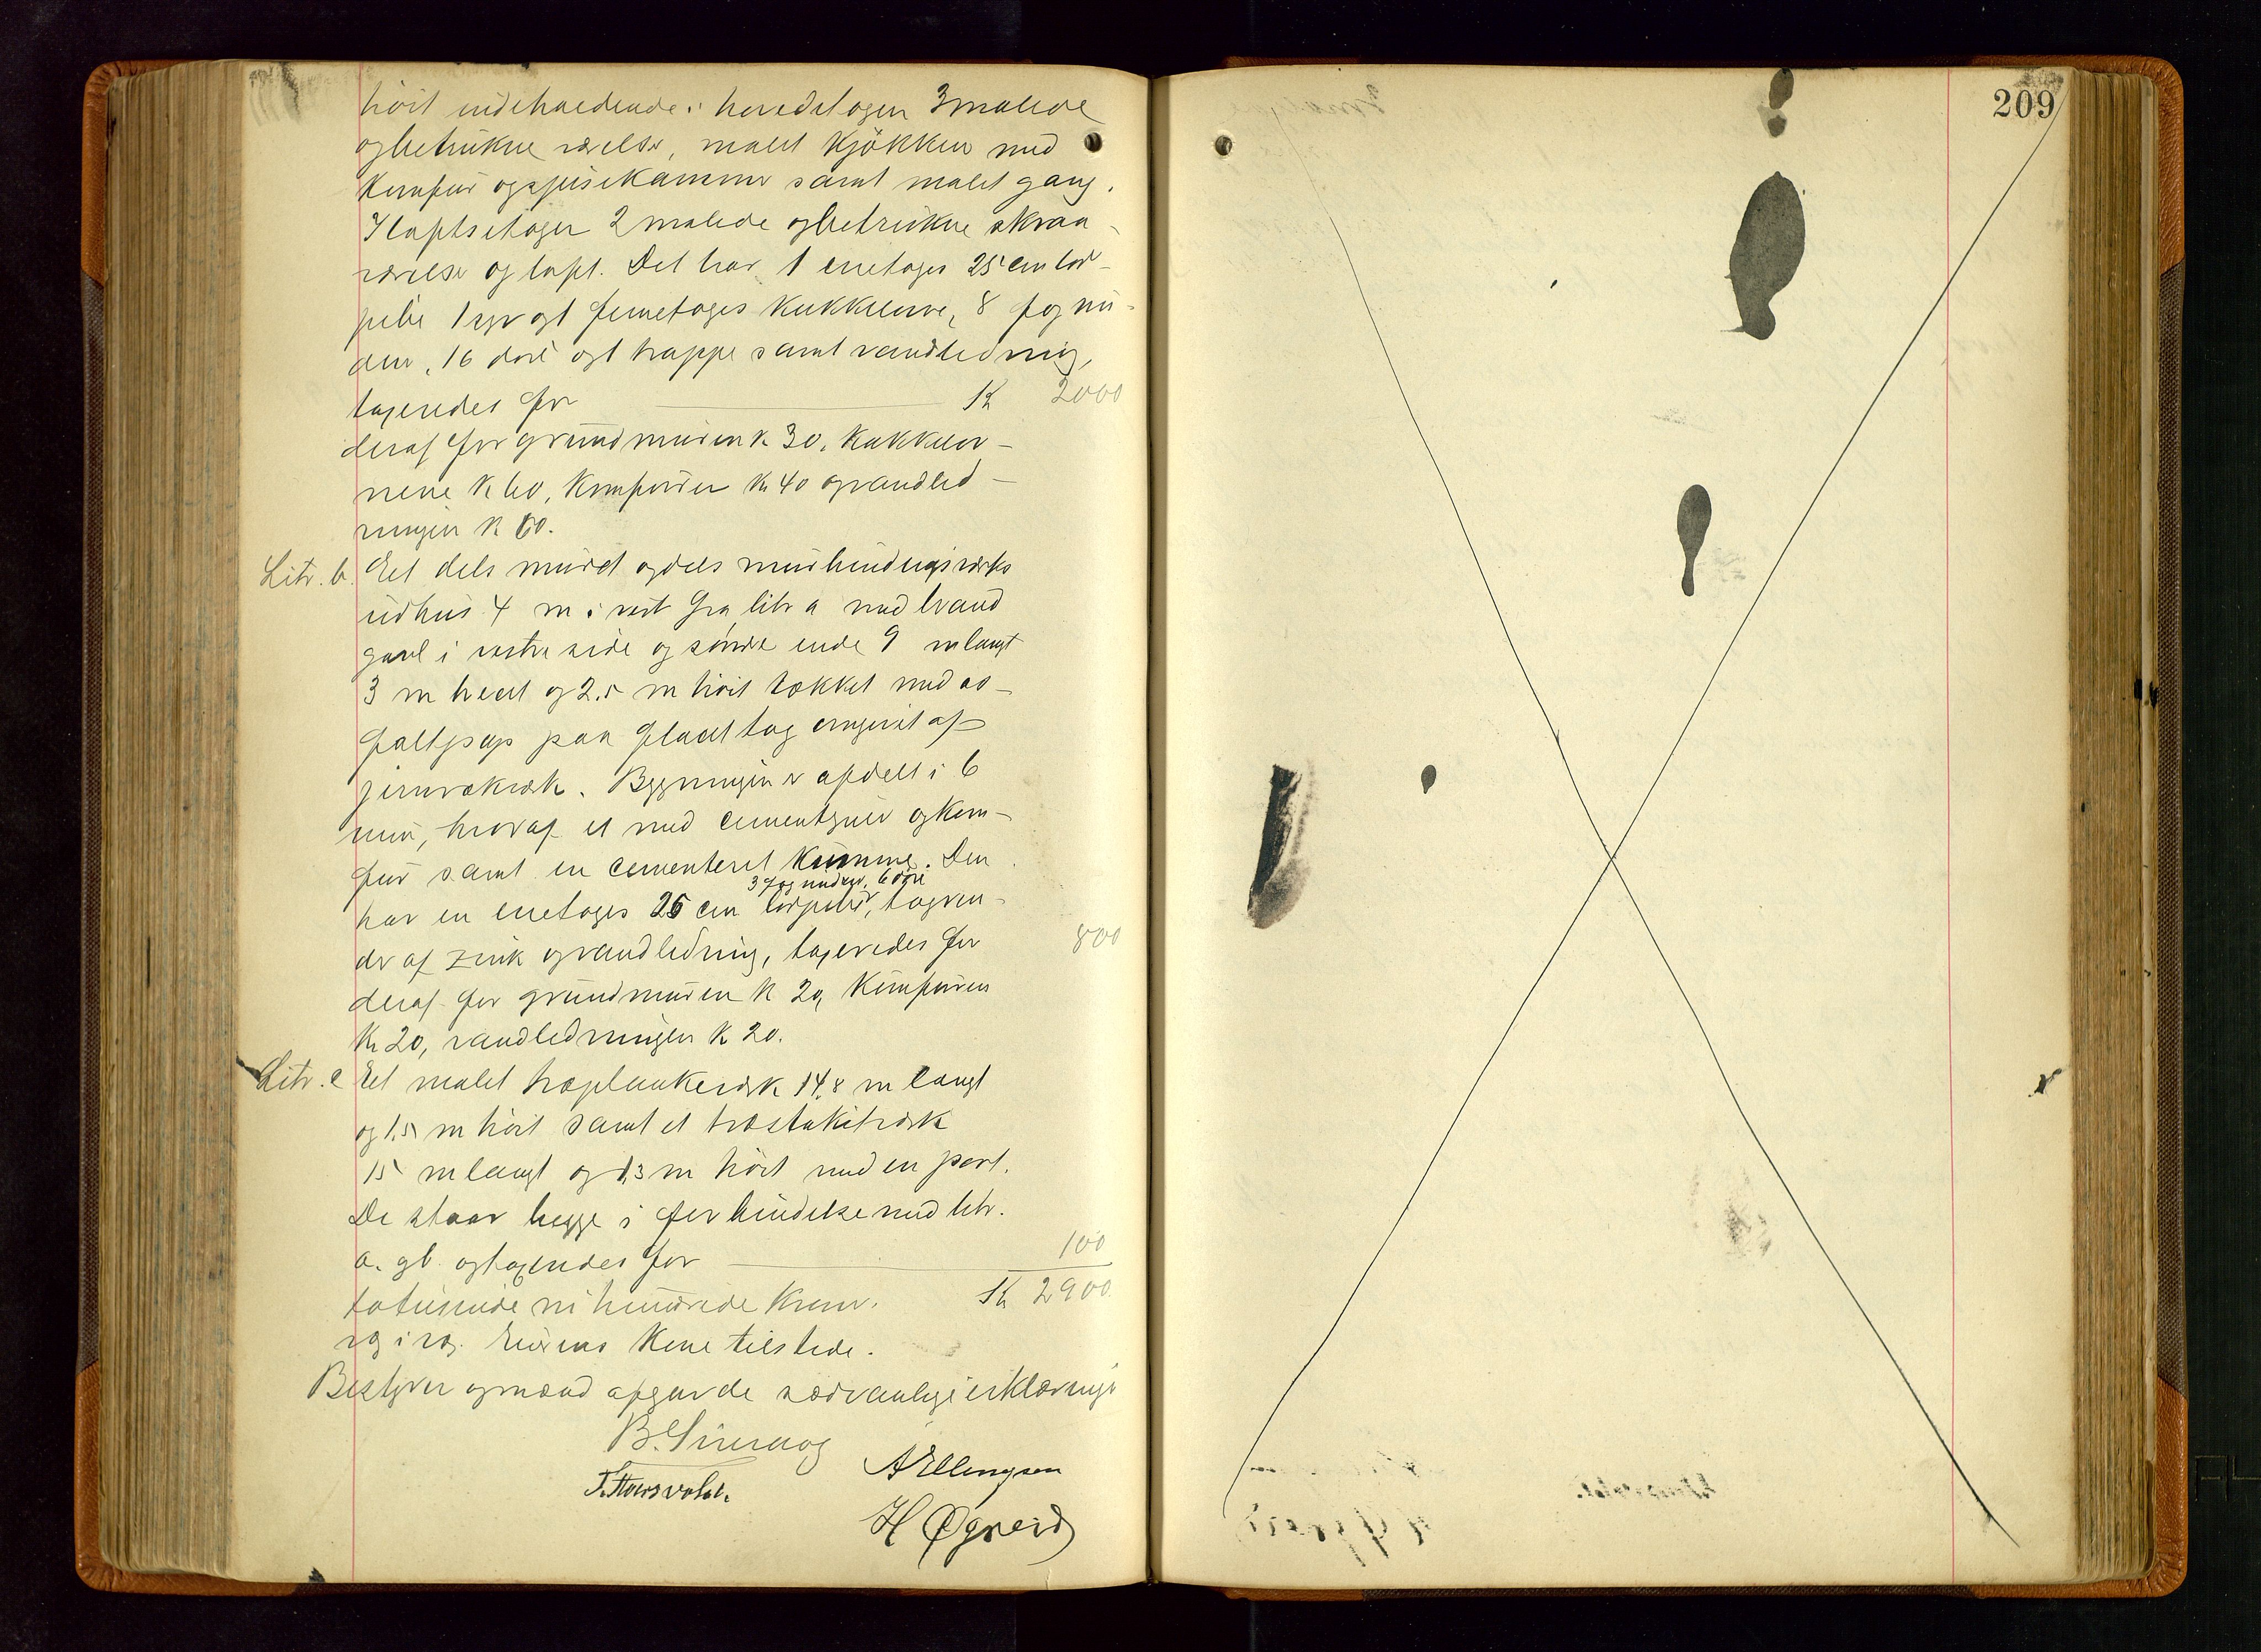 høit indeholdende i hovedetagen 3 malede
og betrukne værelser, malet kjøkken med
komfur og spisekammer samt malet gang.
I loftsetagen 2 malede og betrukne skraa-
værelser og loft. Det har 1 enetages 25 cm lod-
pibe 1 rør og 1 femetages kakkelovn, 8 fag vin-
duer, 16 døre og 1 trappe samt vandledning,
taxeredes for Kr 2000
deraf for grundmuren kr 30, kakkelov-
nene kr 60, komfuren kr 40 og vandled-
ningen kr 60.
Litr. b. Et dels muret og dels murbindingsverks
udhus 4 m i vest fra litr a med brand
gavl i vestre side og søndre ende 9 m langt
3 m bredt og 2,5 m høit tækket med as-
faltpap paa fladt tag omgivet af
jernrækværk. Bygningen er afdelt i 6
rum, hvoraf et med cementgulv og kom-
fur samt en cementeret kumme. Den
3 fag vinduer, 6 døre
har en enetages 25 cm lodpibe, tagren-
der af zink og vandledning, taxeredes for 800
deraf for grundmuren kr 20, komfuren
kr 20, vandledningen kr 20.
Litr. c Et malet træplankeværk 14,8 m langt
og 1,5 m høit samt et træstakitværk
15 m langt og 1,3 m høit med en port.
De staar begge i forbindelse med litr.
a. og b. og taxeredes for 100
totusinde ni hundrede kroner. Kr 2900
Eierens kone tilstede.
Bestyrer og mænd afgav de sædvanlige erklæringer
A Ellingsen
H Øgreid
209